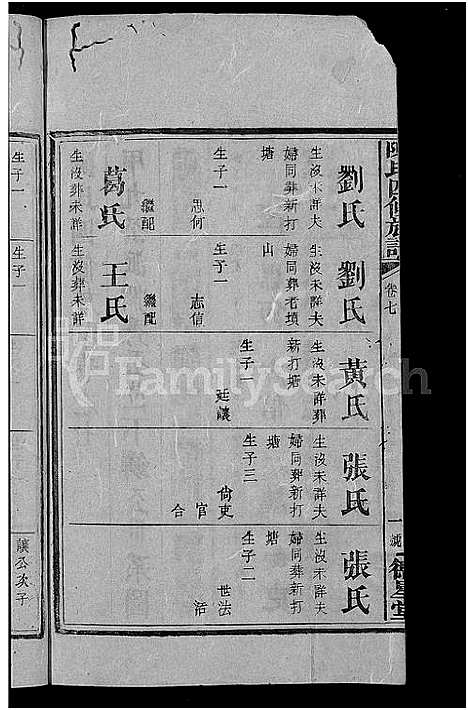 陳氏四修族譜
卷七
德星堂
劉氏
生沒未詳夫
婦同葬新打
塘
生子一
思何
繼配
葛氏
生沒葬未詳
劉氏
生沒未詳夫
婦同葬老墳
山
生子一
志信
繼配
王氏
生沒葬未詳
黃氏
生沒未詳葬
新打塘
生子一
廷讓
張氏
生沒未詳夫
婦同葬新打
塘
生子三
尙吏
官
合
張氏
生沒未詳夫
婦同葬新打
塘
生子二
世法
活
生子一
生子一
讓公次子
FamilySearch